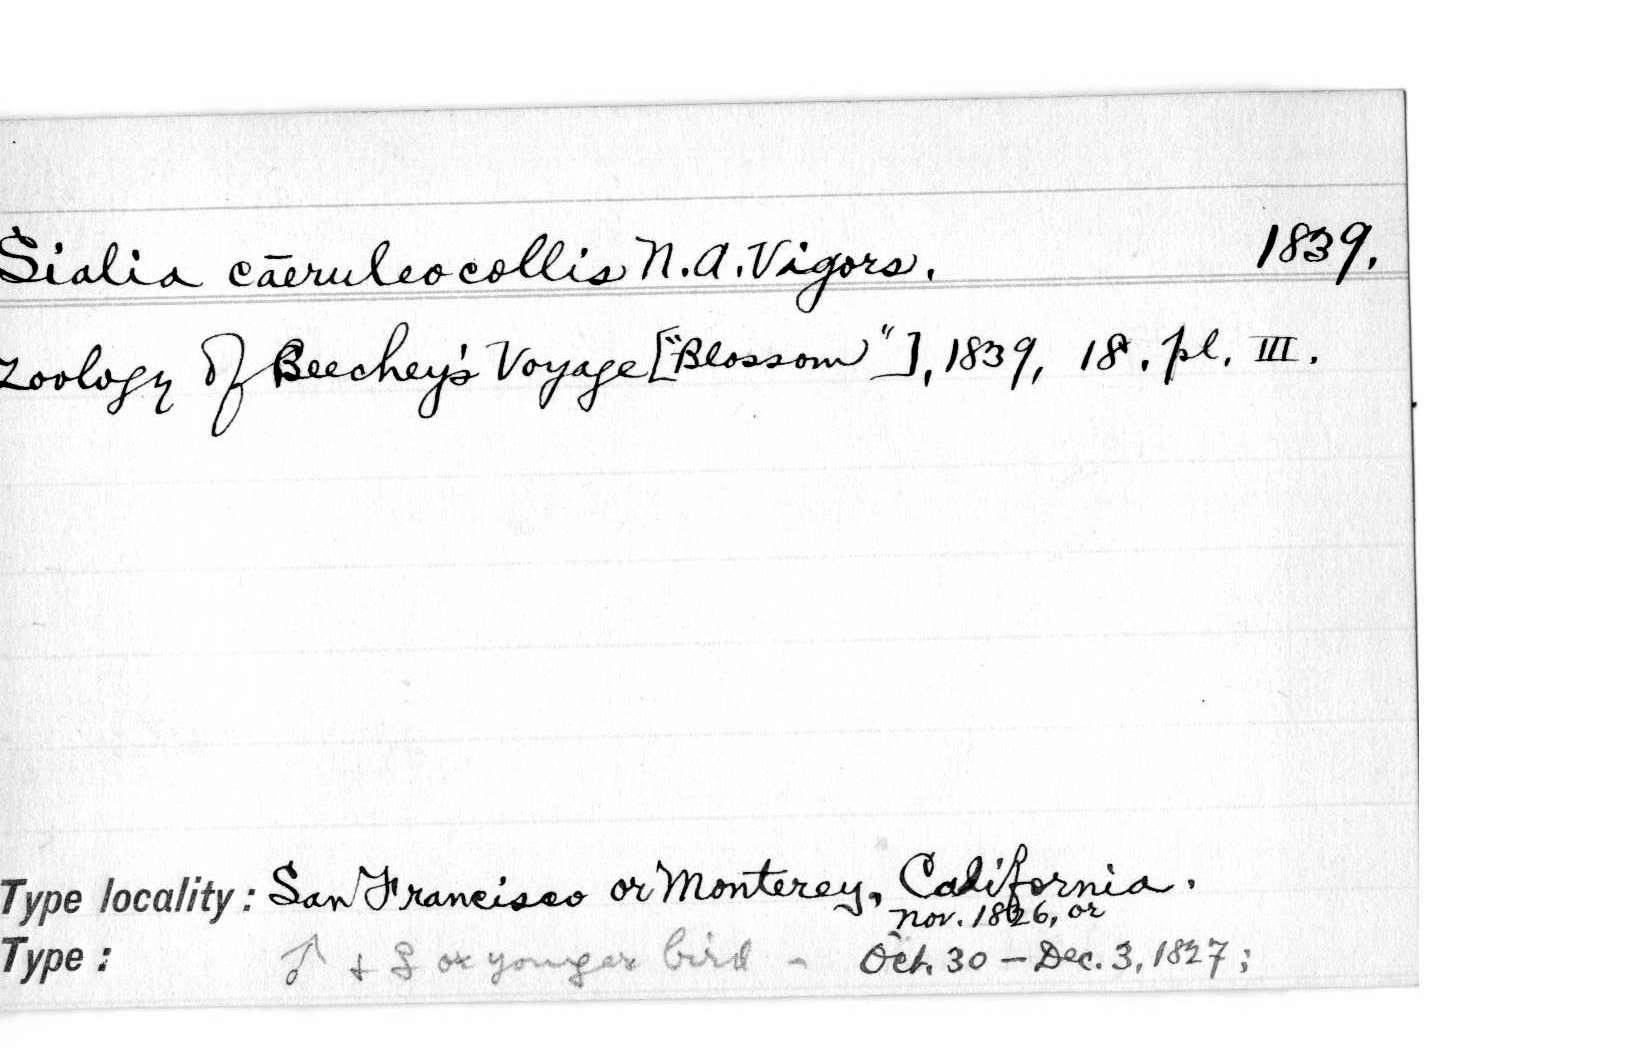 Sialia cāeruleocollis N.A.Vigors. 1839.
Zoology of Beechey's Voyage ["Blossom"], 1839, 18. pl. III.
Type locality: San Francisco or Monterey, California.
Nov. 1826, or
Type: ♂ + ♀ or younger bird - Oct. 30 - Dec. 3, 1827;